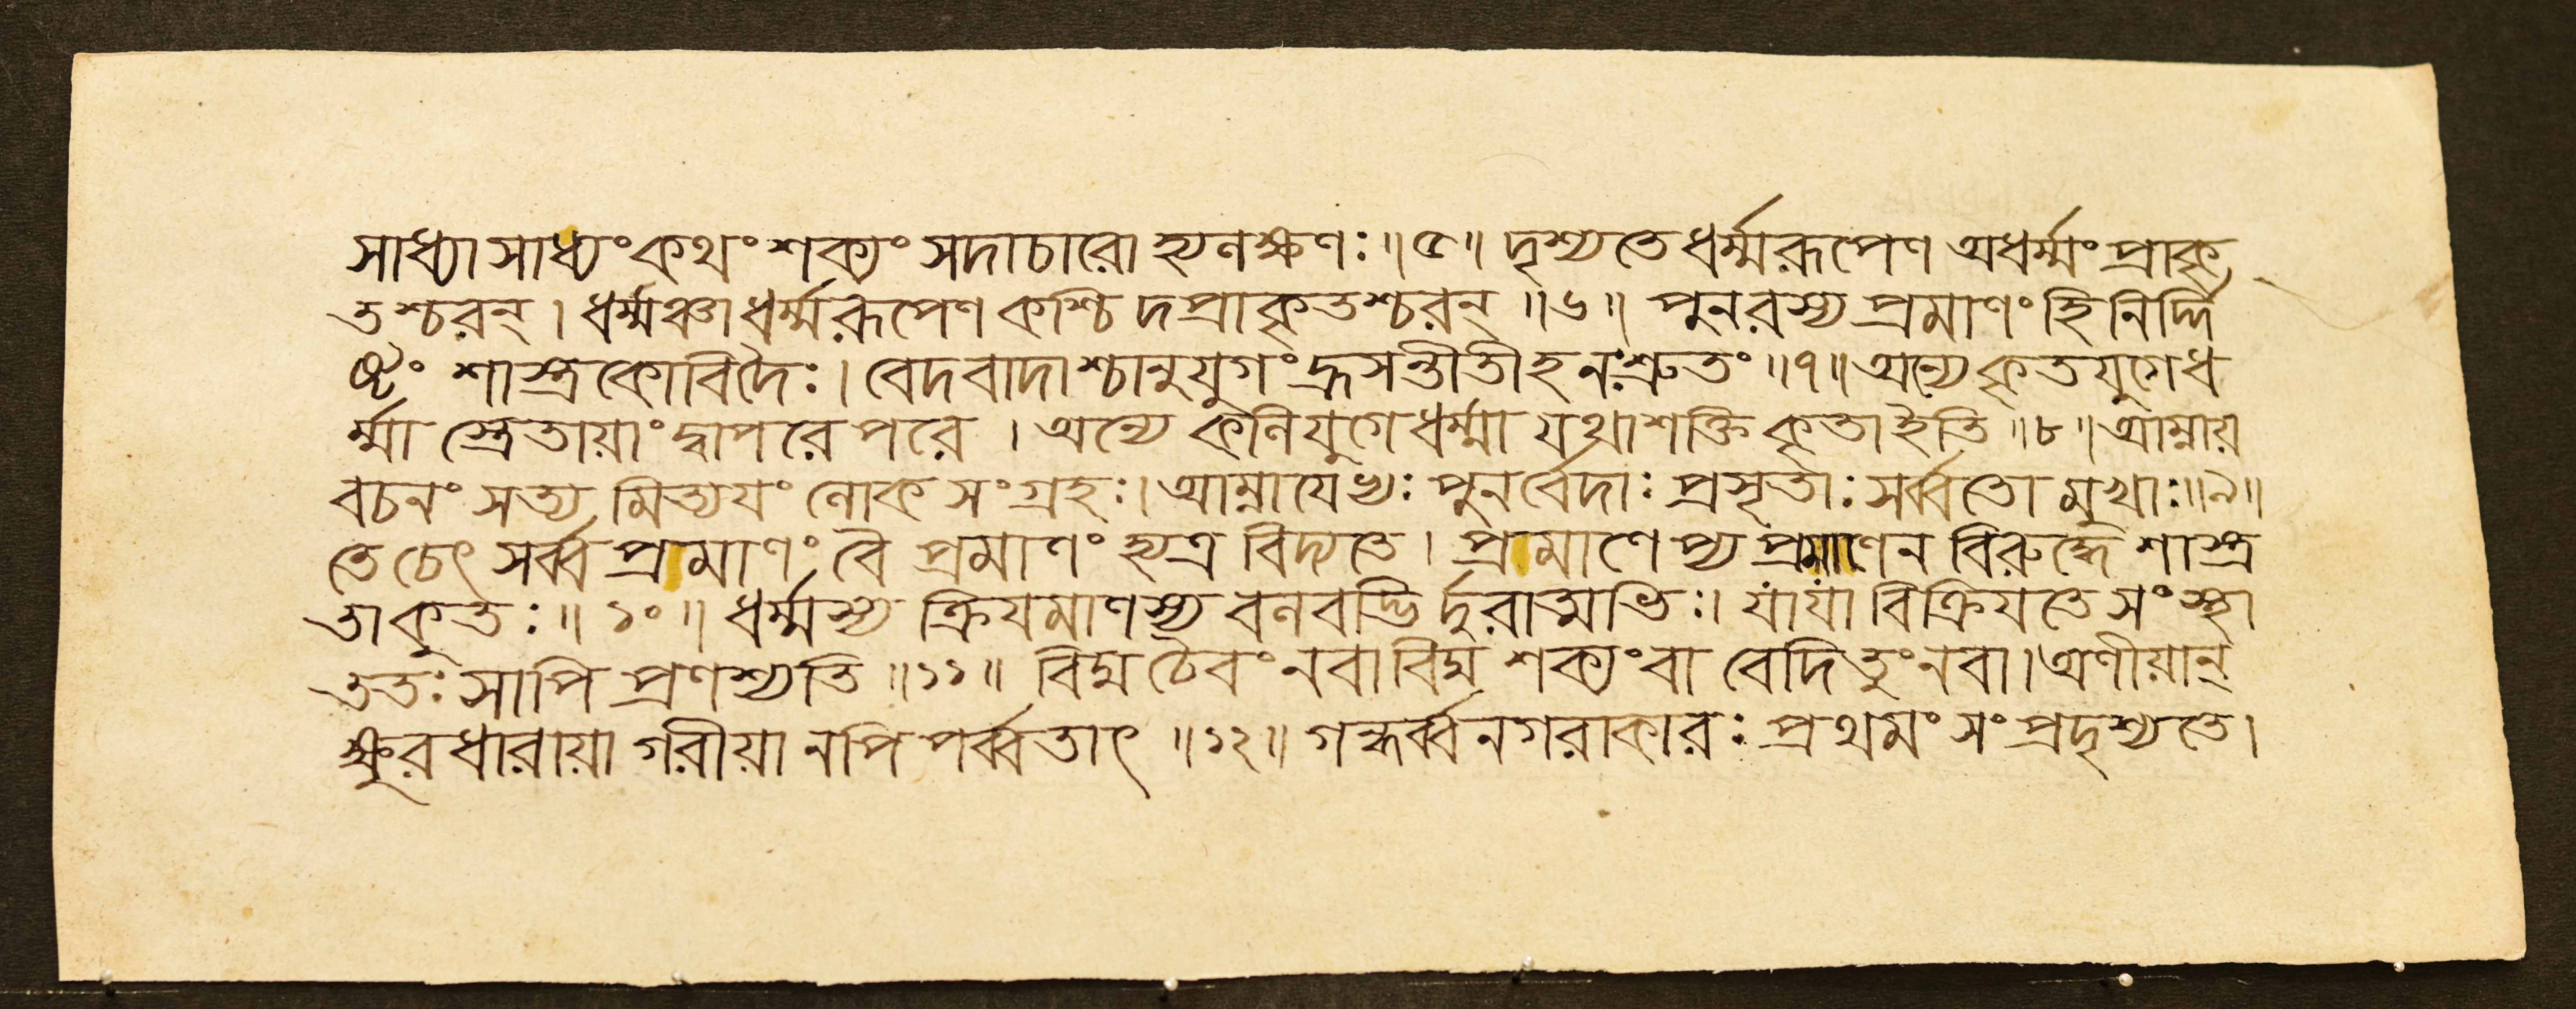 সাধ্যাসাধ্যং কথং শক্যং সদাচারো হ্যলক্ষণঃ ॥ ৫ ॥ দৃশ্যতে ধর্ম্মরূপেণ অধর্ম্মং প্রাকৃ
তশ্চরন্ । ধর্ম্মঞ্চাধর্ম্মরূপেণ কশ্চিদপ্রাকৃতশ্চরন্ ॥ ৬ ॥ পুনরস্য প্রমাণং হি নির্দ্দি
ষ্টং শাস্ত্রকোবিদৈঃ । বেদবাদাশ্চানুযুগং হ্রসন্তীতীহ নঃ শ্রুতং ॥ ৭ ॥ অন্যে কৃতযুগে ধ
র্ম্মা স্ত্রেতায়াং দ্বাপরে পরে । অন্যে কলিযুগে ধর্ম্মা যথাশক্তি কৃতা ইতি ॥ ৮ ॥ আম্নায়
বচনং সত্য মিত্যযং লোক সংগ্রহঃ । আম্নাযেভ্যঃ পুনর্বেদাঃ প্রসৃতাঃ সর্ব্বতো মুখাঃ ॥ ৯ ॥
তে চেৎ সর্ব্ব প্রমাণং বৈ প্রমাণং হ্যত্র বিদ্যতে । প্রমাণেপ্যপ্রমাণেন বিরুদ্ধে শাস্ত্র
তা কুতঃ ॥ ১০ ॥ ধর্ম্মস্য ক্রিযমাণস্য বলবদ্ভির্দুরাত্মভিঃ । যা যা বিক্রিযতে সংস্থা
ততঃ সাপি প্রণশ্যতি ॥ ১১ ॥ বিদ্ম চৈবং নবা বিদ্ম শক্যং বা বেদিতুং নবা । অণীয়ান্
ক্ষুরধারায়া গরীয়ানপি পর্ব্বতাৎ ॥ ১২ ॥ গন্ধর্ব্বনগরাকারঃ প্রথমং সংপ্রদৃশ্যতে ।